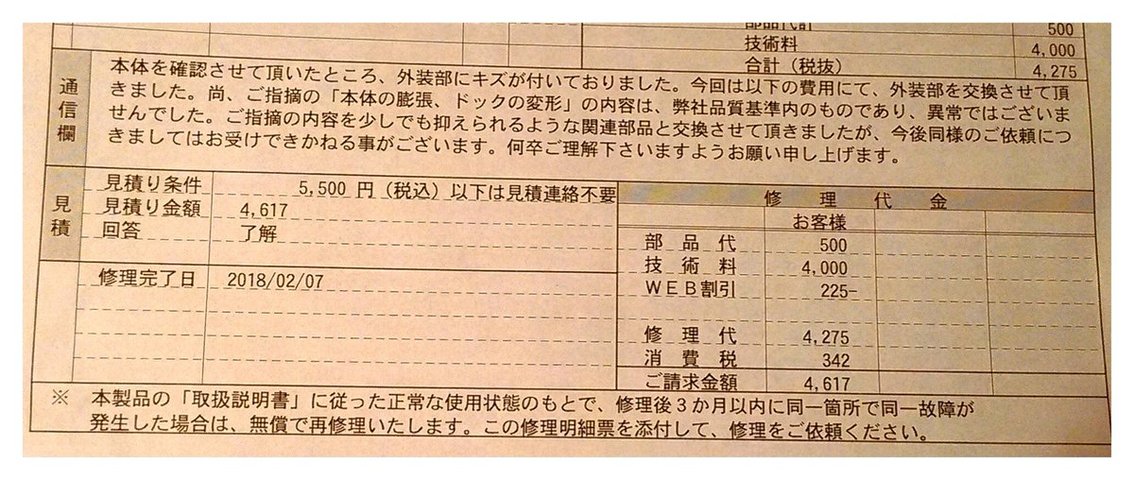 部品代計 500
技術料 4,000
合計（税抜） 4,275
通信欄
本体を確認させて頂いたところ、外装部にキズが付いておりました。今回は以下の費用にて、外装部を交換させて頂
きました。尚、ご指摘の「本体の膨張、ドックの変形」の内容は、弊社品質基準内のものであり、異常ではございま
せんでした。ご指摘の内容を少しでも抑えられるような関連部品と交換させて頂きましたが、今後同様のご依頼につ
きましてはお受けできかねる事がございます。何卒ご理解下さいますようお願い申し上げます。
見積
見積り条件 5,500 円（税込）以下は見積連絡不要
見積り金額 4,617
回答 了解
修理完了日 2018/02/07
修理代金
お客様
部品代 500
技術料 4,000
ＷＥＢ割引 225-
修理代 4,275
消費税 342
ご請求金額 4,617
※ 本製品の「取扱説明書」に従った正常な使用状態のもとで、修理後３か月以内に同一箇所で同一故障が
発生した場合は、無償で再修理いたします。この修理明細票を添付して、修理をご依頼ください。